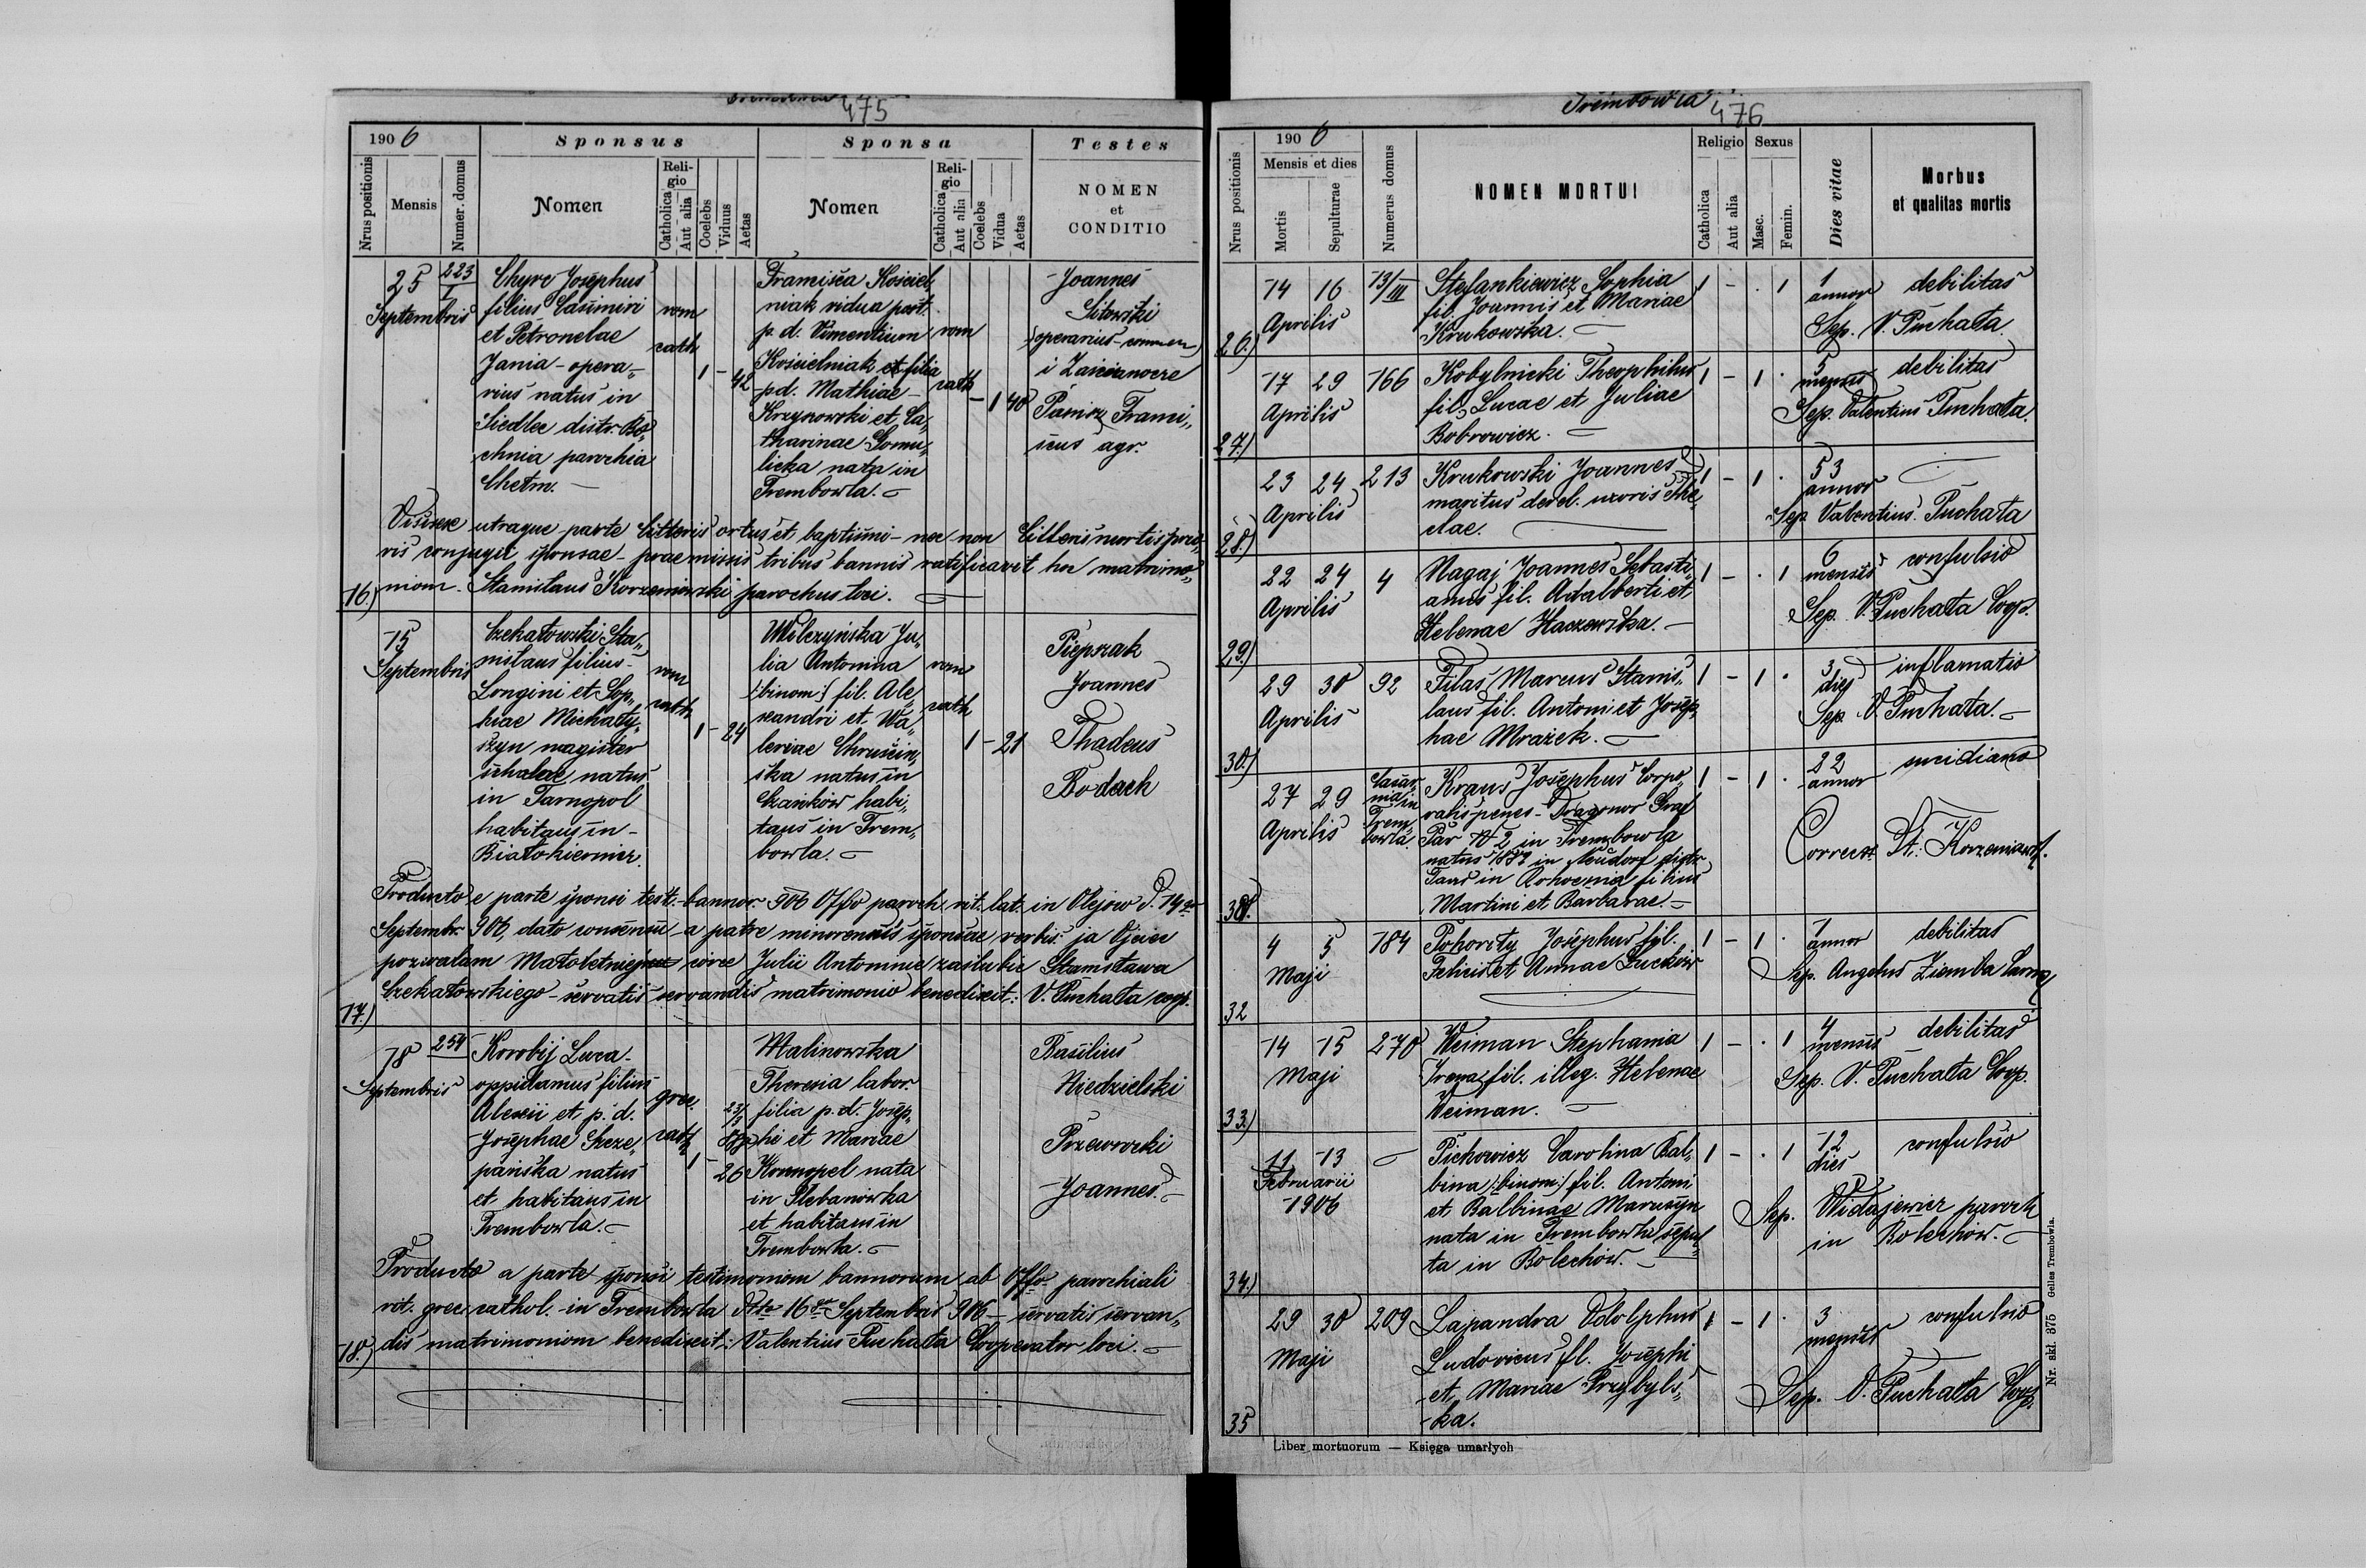 475
1906
Sponsus
Sponsa
Testes
Nrus positionis
Mensis
Numer. domus
Nomen
Religio
Catholica
Aut alia
Coelebs
Viduus
Aetas
Nomen
Religio
Catholica
Aut alia
Coelebs
Vidua
Aetas
NOMEN
et
CONDITIO
16.)
25
Septembris
223
Chyrc Josephus
filius Casimiri
et Petronelae
Jania - opera-
rius natus in
Siedlec distr. Bo-
chnia parochia
Chełm.
rom
cath
1 - 42
Francisca Kościel-
niak vidua post.
p. d. Vincentium
Kościelniak et filia
p d. Mathiae
Krzyżowski et Ca-
tharinae
licka nata in
Trembowla.
rom
cath
- 1 40
Joannes
Sitarski
operarius
i Zaścianocze
Panicz Franci-
scus agr.
utraque parte litteris ortus et baptismi - nec non litteris mortis prio-
ris conjugis sponsae - praemissis tribus bannis ratificavit hoc matrimo-
nium. Stanislaus Korzeniowski parochus loci.
17.)
15
Septembris
Czekałowski Sta-
nislaus filius
Longini et Sop-
hiae Michały-
szyn magister
scholae natus
in Tarnopol
habitans in
Białokiernica.
rom
cath
1 - 24
Wilczyńska Ju-
lia Antonina
/:binom:/ fil. Ale-
xandri et Wa-
leriae Chruścin-
ska natus in
habi-
tans in Trem-
bowla.
rom
cath
1 - 21
Piepszak
Joannes
Thadeus
Bodach
Producto e parte sponsi test. bannor. 906 Offo paroch. rit. lat. in Olejow d. 19
Septembr. 906, dato consensu a patre minorennis sponsae verbis: ja Ojciec
pozwalam małoletniej córce Julii Antoninie zaślubić Stanisława
Czekałowskiego - servatis servandis matrimonio benedixit: V. Puchała coop.
18.)
18
Septembris
259
Korobij Luca
oppidanus filius
Alexii et p. d.
Josephae Szcze-
pańska natus
et habitans in
Trembowla.
grec.
cath
1 - 26
Malinowska
Theresia labor.
filia p. d. Josep-
hi et Mariae
Konnopel nata
in Plebanówka
et habitans in
Trembowla.
Basilius
Niedzielski
Przeworski
Joannes.
Producto a parte sponsi testimonium bannorum ab Offo parochiali
rit. grec. cathol. in Trembowla dto 16 Septembris 906 - servatis servan-
dis matrimonium benedixit: Valentius Puchała Cooperator loci.
Trembowla
476
1906
Nrus positionis
Mensis et dies
Mortis
Sepulturae
Numerus domus
NOMEN MORTUI
Religio
Catholica
Aut alia
Sexus
Masc.
Femin.
Dies vitae
Morbus
et qualitas mortis
26.)
14 16
Aprilis
13/III
Stefankiewicz Sophia
fil. Joannis et Mariae
Krukowska.
1 - . 1
1
annor
debilitas
Sep. V. Puchała.
27.)
17 29
Aprilis
166
Kobylnicki Theophilus
fil. Lucae et Juliae
Bobrowicz.
1 - 1 .
5
mensis
debilitas
Sep. Valentius Puchała.
28.)
23 24
Aprilis
213
Krukowski Joannes
maritus derel. uxoris The-
clae.
1 - 1 .
53
annor
Sep. Valentius Puchała
29.)
22 24
Aprilis
4
Nagaj Joannes Sebasti-
anus fil. Adalberti et
Helenae Haczewska.
1 - . 1
6
mensis
confulsio
Sep. V. Puchała Coop.
30.)
29 30
Aprilis
92
Filas Marcus Stanis-
laus fil. Antoni et Josep-
hae Mrażek.
1 - 1 .
3
dies
inflamatio
Sep. V. Puchała.
31.
27 29
Aprilis
in
Trem-
bowla.
Kraus Josephus Corpo-
ralis penes Dragonor Graf
Par N 2 in Trembowla
natus in Neudorf distr.
in filius
Martini et Barbarae.
1 - 1 .
22
annor
suicidiano
St. Korzeniowski.
32
4 5
Maji
184
Pohority Josephus fil.
Felicis et Annae Luckiów
1 - 1 .
1
annor
debilitas
Sep. Angelus Ziemba
33.)
14 15
Maji
270
Weiman Stephania
Irena fil. illeg. Helenae
Weiman.
1 - . 1
4
mensis
debilitas
Sep. V. Puchała Coop.
34.)
11 13
Februarii
1906
Pichowicz Carolina Bal-
bina /:binom:/ fil. Antoni
et Balbinae Maruszyn
nata in Trembowla sepul-
ta in Bolechów.
1 - . 1
12
dies
confulsio
Sep. Widajewicz paroch
in Bolechów.
35
29 30
Maji
209
Lapandra Odolphus
Ludovicus fil. Josephi
et Mariae Przybyls-
ka.
1 - 1 .
3
mensis
confulsio
Sep. V. Puchała Coop.
Liber mortuorum — Księga umarłych
Nr. skł. 375 Gelles Trembowla.